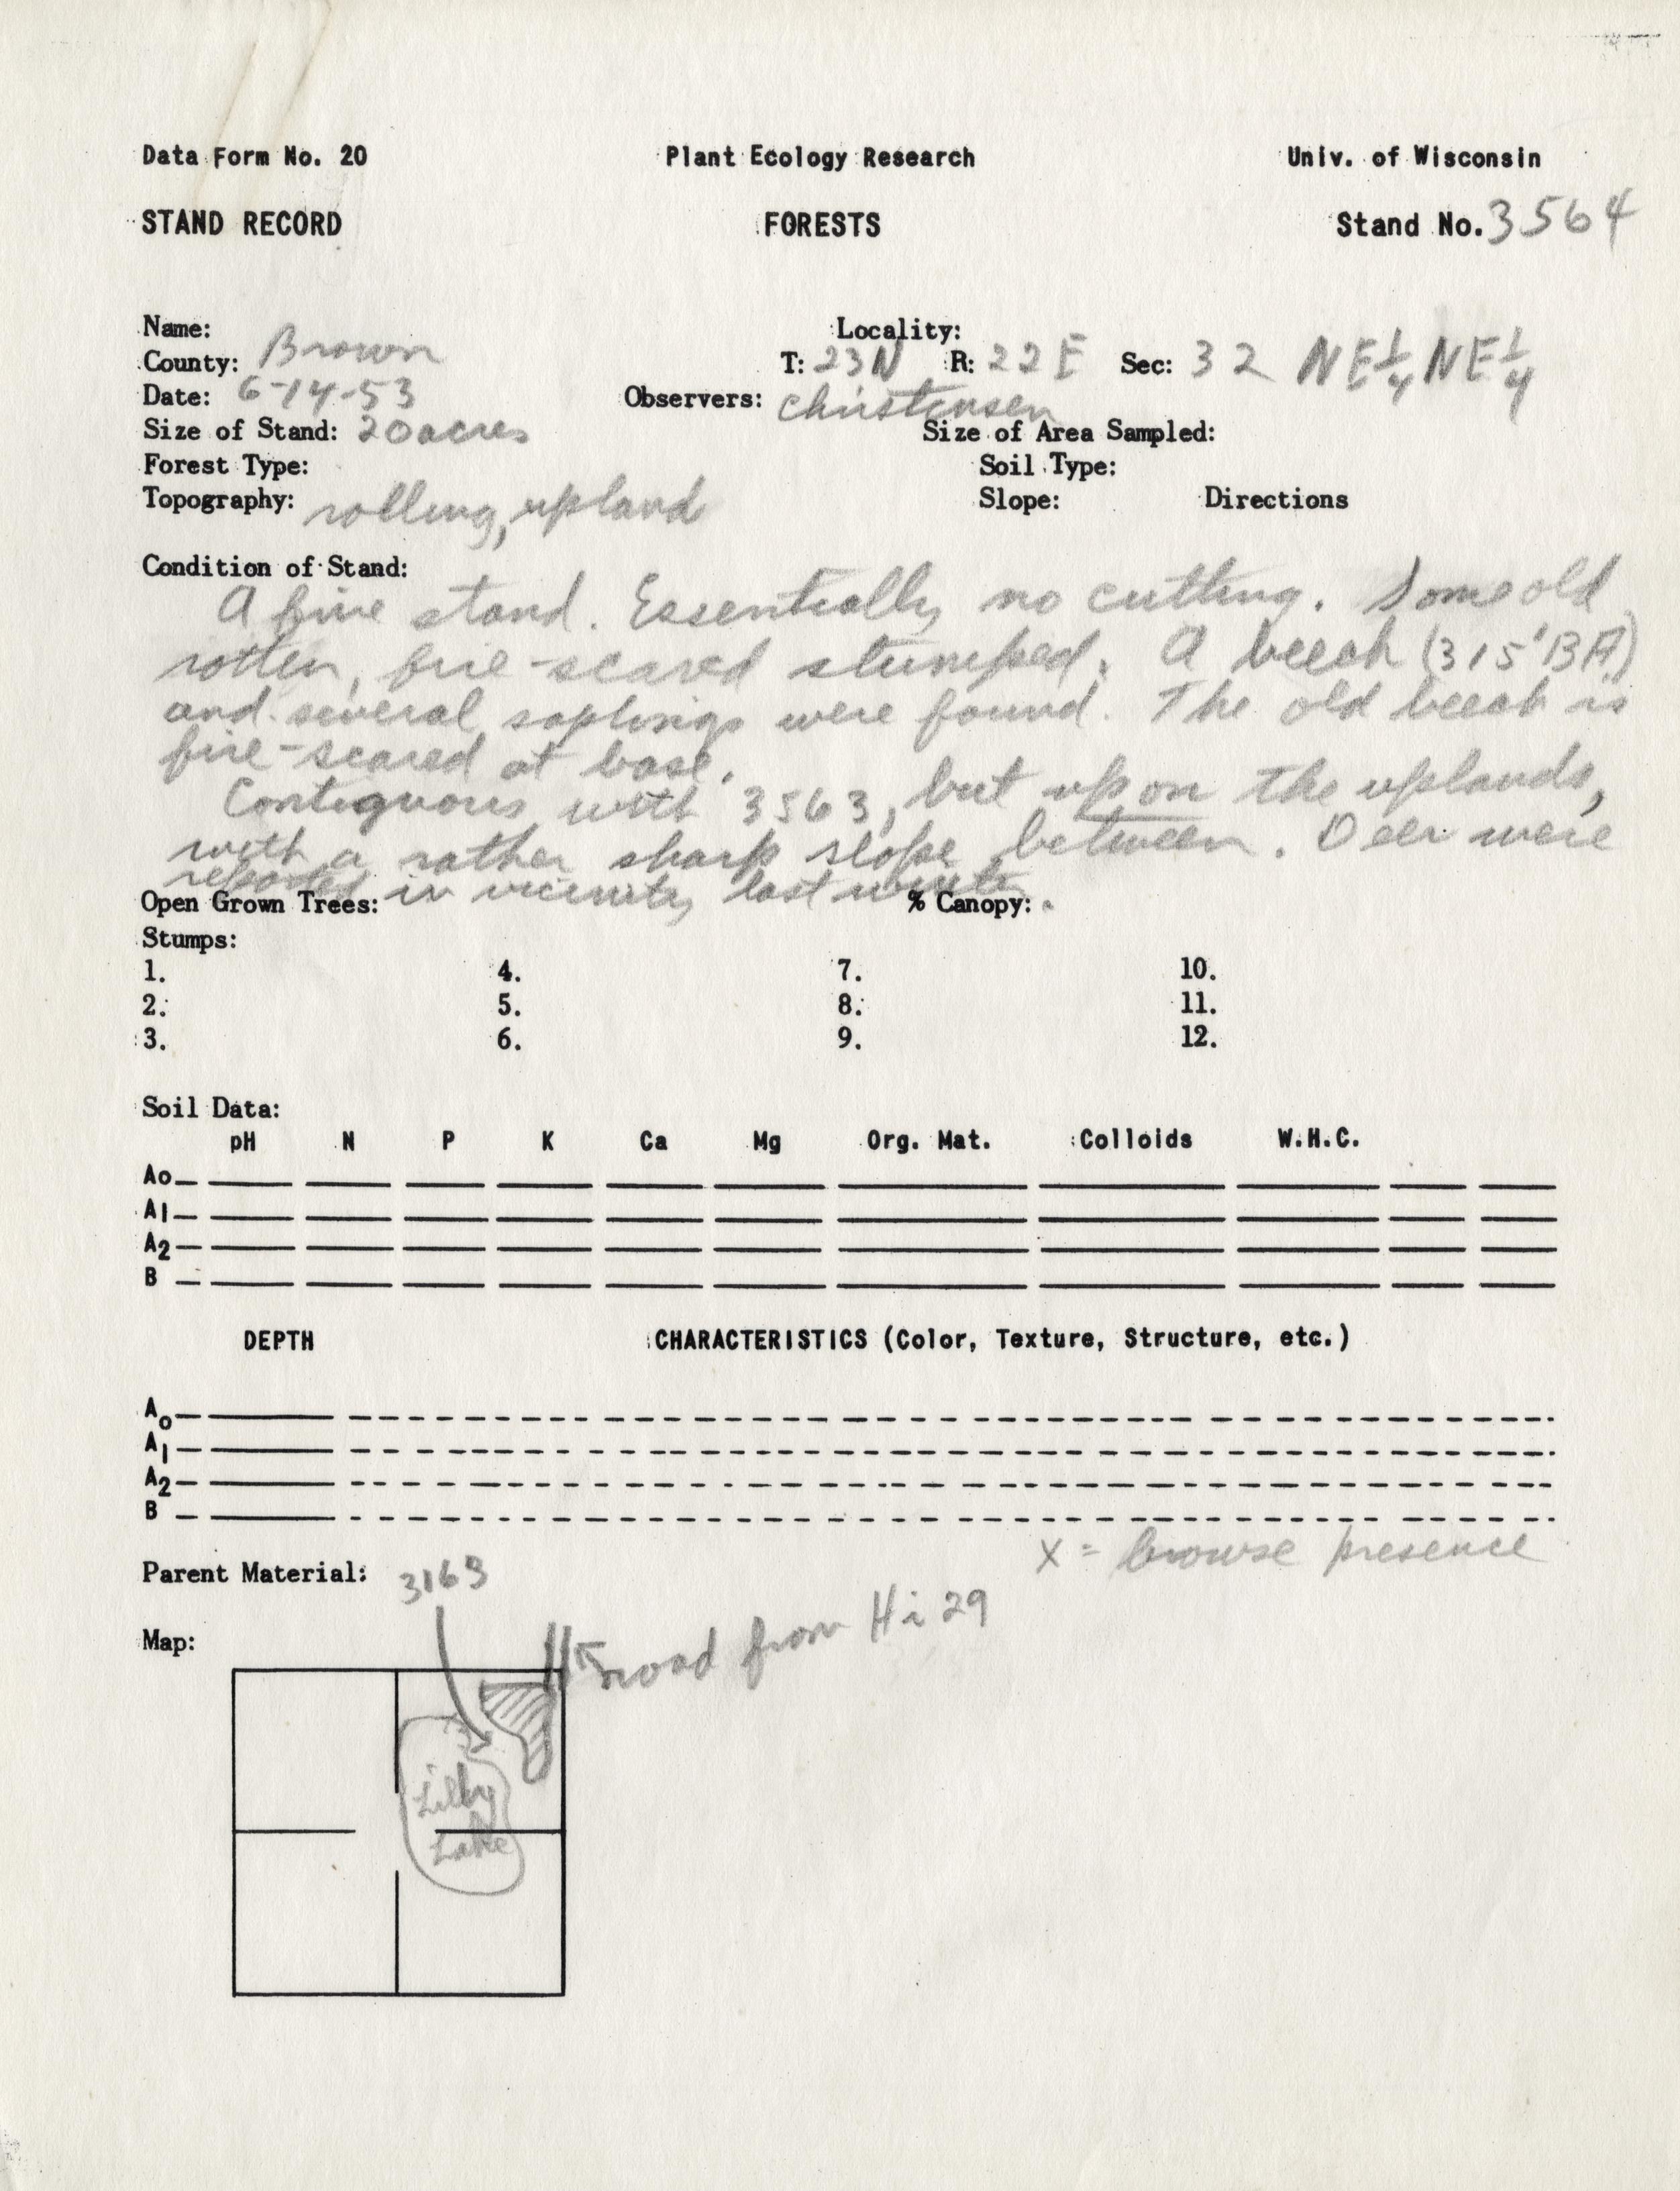 Data Form No. 20 Plant Ecology Research Univ. of Wisconsin
STAND RECORD FORESTS Stand No. 3564
Name: Locality:
County: Brown T: 23N R: 22E Sec: 32 NE¼ NE¼
Date: 6-14-53 Observers: Christensen
Size of Stand: 20 acres Size of Area Sampled:
Forest Type: Soil Type:
Topography: rolling, upland Slope: Directions
Condition of Stand:
A fine stand. Essentially no cutting. Some old
rotten, fire-scared stumped. A beech (315'BA)
and several saplings were found. The old beech is
fire-scared at base.
Contiguous with 3563, but up on the uplands,
with a rather sharp slope between. Deer were
reported in vicinity last winter
Open Grown Trees: % Canopy:
Stumps:
1. 4. 7. 10.
2. 5. 8. 11.
3. 6. 9. 12.
Soil Data:
pH N P K Ca Mg Org. Mat. Colloids W.H.C.
Ao
A1
A2
B
DEPTH CHARACTERISTICS (Color, Texture, Structure, etc.)
Ao
A1
A2
B
x = browse presence
Parent Material: 3163
road from Hi 29
Map:
Lilly
Lake